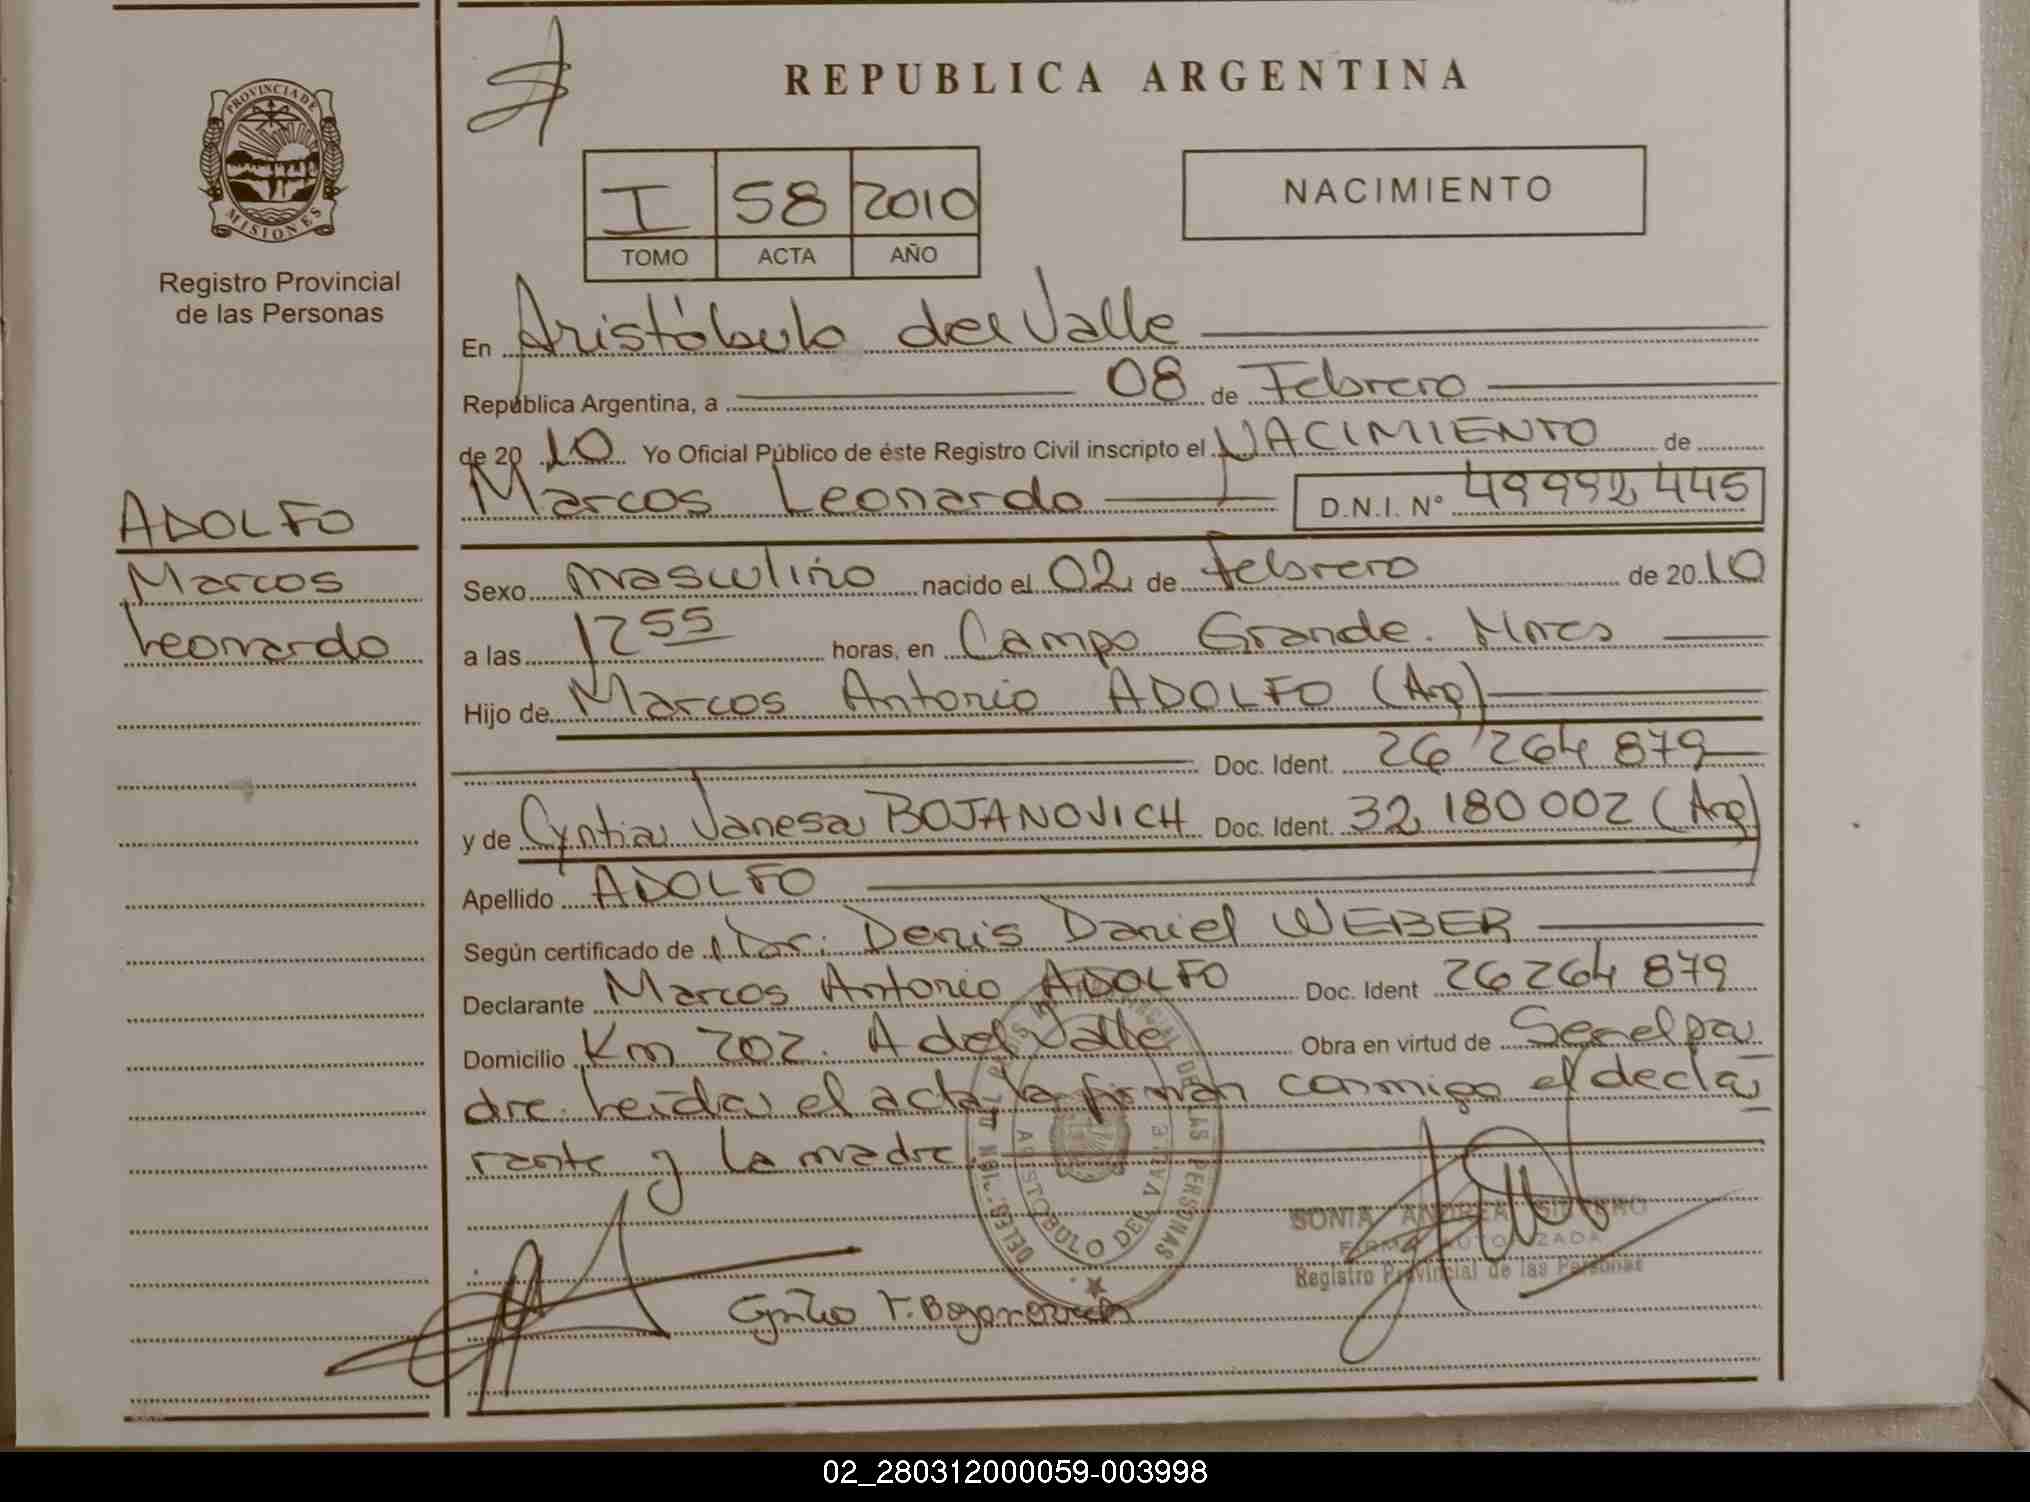 PROVINCIA DE
MISIONES
Registro Provincial
de las Personas
ADOLFO
Marcos
Leonardo
REPUBLICA ARGENTINA
I 58 2010
TOMO ACTA AÑO
NACIMIENTO
En Aristóbulo del Valle
República Argentina, a 08 de Febrero
de 2010 Yo Oficial Público de éste Registro Civil inscripto el NACIMIENTO de
Marcos Leonardo D.N.I. Nº 49992445
Sexo masculino nacido el 02 de Febrero de 2010
a las 1255 horas, en Campo Grande. Mnes
Hijo de Marcos Antonio ADOLFO (Arg)
Doc. Ident. 26 264 879
y de Cyntia Vanesa BOJANOVICH Doc. Ident. 32 180 002 (Arg)
Apellido ADOLFO
Según certificado de Dr. Denis Daniel WEBER
Declarante Marcos Antonio ADOLFO Doc. Ident 26 264 879
Domicilio Km 202. A del Valle Obra en virtud de Ser el pa
dre. Leída el acta, la firman conmigo el decla
rante y la madre.
ARISTOBULO DEL VALLE
DE LAS PERSONAS
SONIA ANDREA
FIRMA AUTORIZADA
Registro Provincial de las Personas
02_280312000059-003998